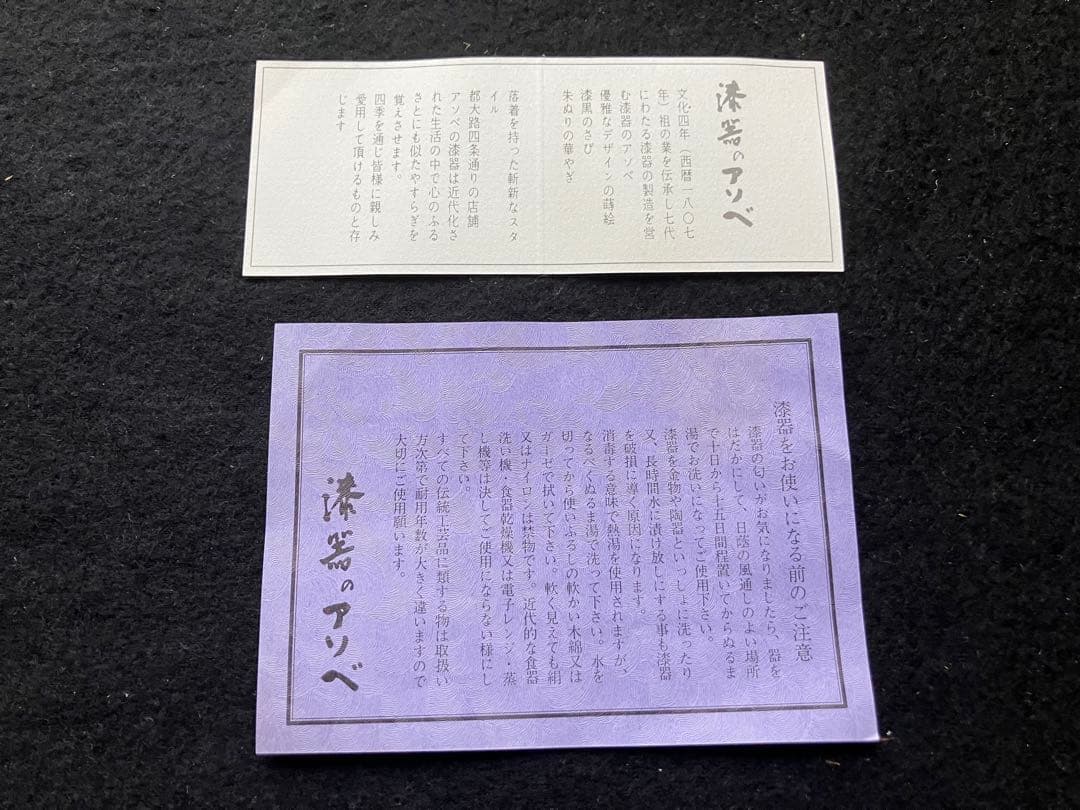 漆器のアソベ
文化四年（西暦一八〇七
年）祖の業を伝承し七代
にわたる漆器の製造を営
む漆器のアソベ
優雅なデザインの蒔絵
漆黒のさび
朱ぬりの華やぎ
落着を持った斬新なスタ
イル
都大路四条通りの店舗
アソベの漆器は近代化さ
れた生活の中で心のふる
さとにも似たやすらぎを
覚えさせます。
四季を通じ皆様に親しみ
愛用して頂けるものと存
じます
漆器をお使いになる前のご注意
漆器の匂いがお気になりましたら、器を
はだかにして、日蔭の風通しのよい場所
で十日から十五日間程置いてからぬるま
湯でお洗いになってご使用下さい。
漆器を金物や陶器といっしょに洗ったり
又、長時間水に漬け放しにする事も漆器
を破損に導く原因になります。
消毒する意味で熱湯を使用されますが、
なるべくぬるま湯で洗って下さい。水を
切ってから使いふるしの軟かい木綿又は
ガーゼで拭いて下さい。軟く見えても絹
又はナイロンは禁物です。近代的な食器
洗い機・食器乾燥機又は電子レンジ・蒸
し機等は決してご使用にならない様にし
て下さい。
すべての伝統工芸品に類する物は取扱い
方次第で耐用年数が大きく違いますので
大切にご使用願います。
漆器のアソベ